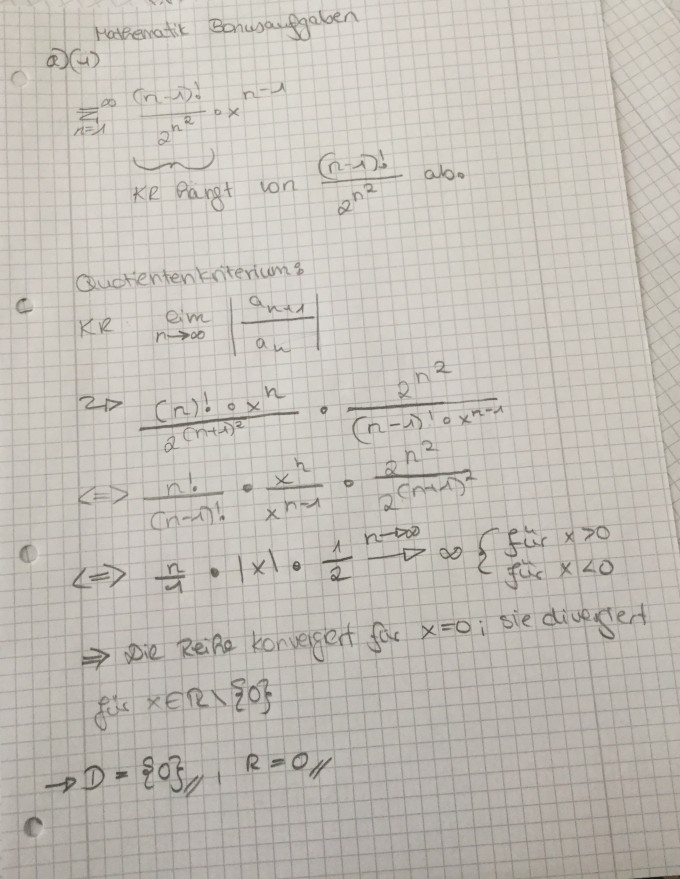 Mathematik Bonusaufgaben
a)(1)
∞ Σ n=1 (n-1)! / 2^n² · x^n-1
KR hängt von (n-1)! / 2^n² ab.
Quotientenkriterium:
KR lim n→∞ | a_n+1 / a_n |
=> (n)! · x^n / 2^(n+1)² · 2^n² / (n-1)! · x^n-1
<=> n! / (n-1)! · x^n / x^n-1 · 2^n² / 2^(n+1)²
<=> n/1 · |x| · 1/2 n→∞ → ∞ { für x>0
für x<0
=> Die Reihe konvergiert für x=0; sie divergiert
für x∈ℝ\{0}
→ D = {0}//, R = 0//